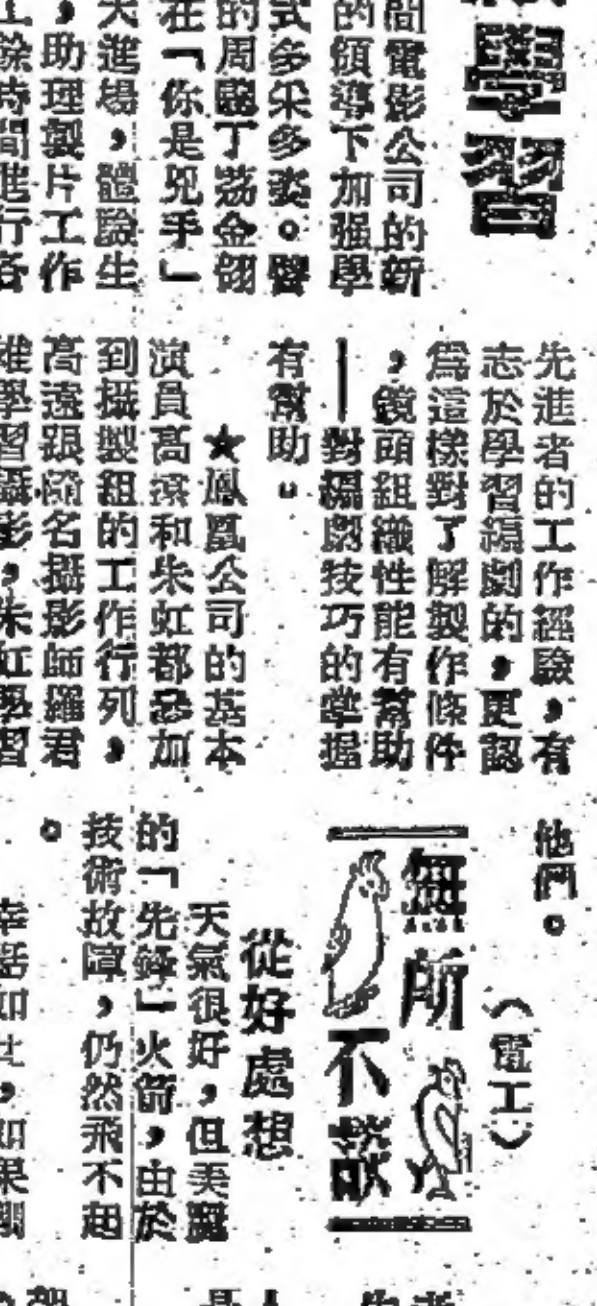 學習
間電影公司的新
的領導下加强學
式多采多姿。
的周聰丁荔金翎
在「你是兇手」
天進場，體驗生
，助理製片工作
餘時間進行各
先進者的工作經驗，有
志於學習編劇的，更認
爲這樣對了解製作條件
，鏡頭組織性能有幫助
——對編劇技巧的掌握
有幫助。
★鳳凰公司的基本
演員高遠和朱虹都參加
到攝製組的工作行列，
高遠跟隨名攝影師羅君
雄學習攝影，朱虹學習
他們。
（電工）
無所不談
從好處想
天氣很好，但美國
的「先鋒」火箭，由於
技術故障，仍然飛不起
。
幸話如此，如果